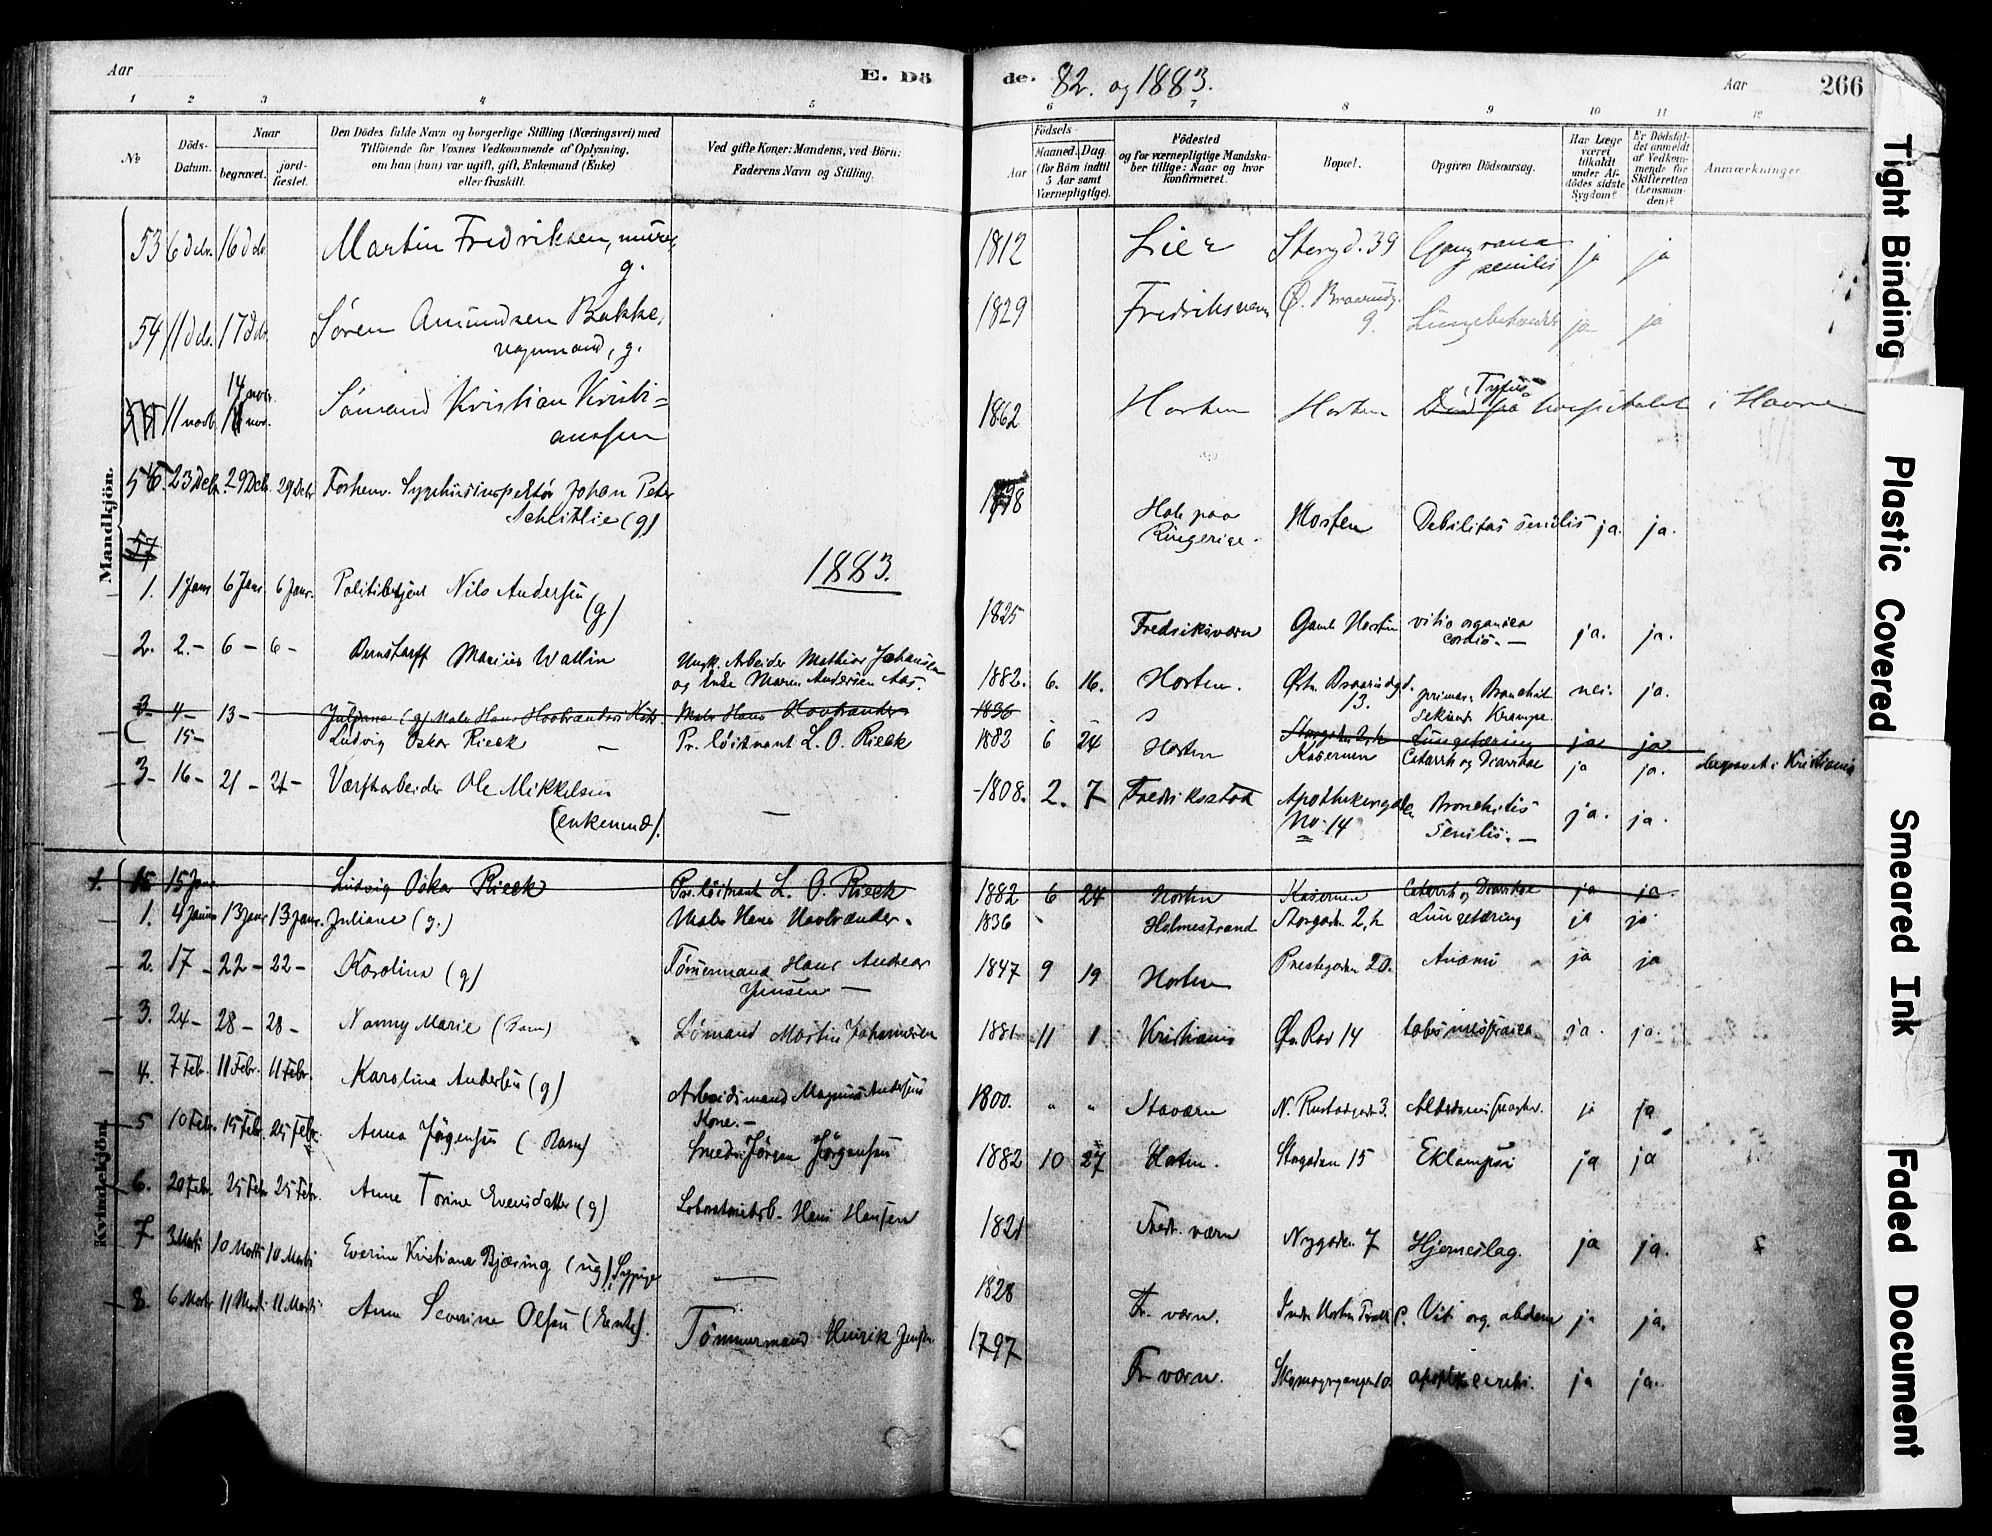 Aar
E. Dö
de. 82. og 1883.
Aar
266
1 2 3 4 5 6 7 8 9 10 11 12
No
Döds-Datum.
Naar
begravet.
jord-fæstet.
Den Dödes fulde Navn og borgerlige Stilling (Næringsvei) med
Tilföiende for Voxnes Vedkommende af Oplysning,
om han (hun) var ugift, gift, Enkemand (Enke)
eller fraskilt.
Ved gifte Koner: Mandens, ved Börn:
Faderens Navn og Stilling.
Födsels-
Aar
Maaned. Dag
(for Börn indtil
5 Aar samt
Værnepligtige).
Födested
og for værnepligtige Mandska-
ber tillige: Naar og hvor
konfirmeret.
Bopæl.
Opgiven Dödsaarsag.
Har Læge
været
tilkaldt
under Af-
dödes sidste
Sygdom?
Er Dödsfal-
det anmeldt
af Vedkom-
mende for
Skifteretten
(Lensman-
den)?
Anmærkninger.
Mandkjön.
53 6 dcbr. 16 dcbr. Martin Fredriksen, murer, g. 1812 Lier Storgd. 39 Gangræna senilis ja ja
54 11 dcbr. 17 dcbr. Søren Amundsen Bakke, vognmand, g. 1829 Fredriksværn Ø. Braarudg. 9. ja ja
11 novb. 14 novr. Sømand Kristian Kristi=
anssen 1862 Horten Horten Tyfus Død paa hospitalet i Havre
56. 23 Dcbr. 29 Dcbr. 29 Dcbr Forhenv. Sygehusinspektør Johan Peter
Schlitlie (g) Hole paa
Ringerige. Horten Debilitas senilis ja. ja.
57
1883.
1. 1 Janr 6 Janr. 6 Janr. Politibetjent Nils Andersen
(g) 1825 Fredriksværn Gamle Horten vitia organica
cordis. — ja. ja.
2. 2. – 6 – 6 – Bernstorff Marius Wallin Ungk. Arbeider Mathias Johansen
og Enke Maren Andersen Aas. 1882. 6. 16. Horten. Østr. Braarudgd.
13. primær Bronchit
sekund. Krampe. nei. ja.
3. 4 – 13 – Juliane (g) Maler Hans Havbranders Kone. Maler Hans Havbrander 1836 Storgaden 2, h Lungetæring ja ja
15 – Ludvig Oskar Rieck — Pr. løitnant L. O. Rieck 1882 6 24 Horten Kasernen Catarrh og Diarrhoe ja ja. begravet i Kristiania
3 – 16 – 21 – 21 – Værftarbeider Ole Mikkelsen
(enkemand). — 1808. 2. 7 Fredriksstad Apothekergaden
No. 14 Bronchitis
senilis. — ja. ja.
Kvindekjön.
1. 15 15 Janr Ludvig Oskar Rieck Pr. løitnant L. O. Rieck 1882 6 24 Horten Kasernen Catarrh og Diarrhoe ja ja.
1. 4 Janr 13 Janr 13 Janr. Juliane (g.) Maler Hans Havbrander. 1836 Holmestrand Storgaden 2, h Lungetæring ja ja
2. 17 – 22 – 22 – Karoline (g) Tømmermand Hans Andreas
Jensen — 1847 9 19 Horten Prestegaden 20. Anæmi ja ja
3. 24 – 28 – 28 – Nanny Marie (Barn) Sømand Martin Johannesen 1881 11 1 Kristiania Øv. Rad 14 tabes mesaraica ja. ja.
4. 7 Febr. 11 Febr. 11 Febr. Karoline Andersen (g) Arbeidsmand Magnus Andersens
Kone. — 1800. " " Stavern N. Rustadgade 3. ja ja
5 10 Febr. 15 Febr. 25 Febr. Anna Jørgensen (Barn) Smed Jørgen Jørgensen 1882 10 27 Horten. Storgaden 15 Eklampsi ja ja
6. 20 Febr. 25 Febr 25 Febr. Anne Torine Evensdatter (g) Laboratoriearb. Hans Hansen 1821 Fredr. værn Nygaden 7 Hjerneslag. ja ja.
7 3 Marts 10 Marts 10 Marts Everine Kristiane Bjæring (ug), Sypige — 1828 Fr. værn. Indre Horten Viti org. abdom ja ja.
8. 6 Marts 11 Marts 11 Marts Anne Severine Olsen (Enke). Tömmermand Henrik Jensen 1797 Fr. værn. ja ja.
Tight Binding
Plastic Covered
Smeared Ink
Faded Document